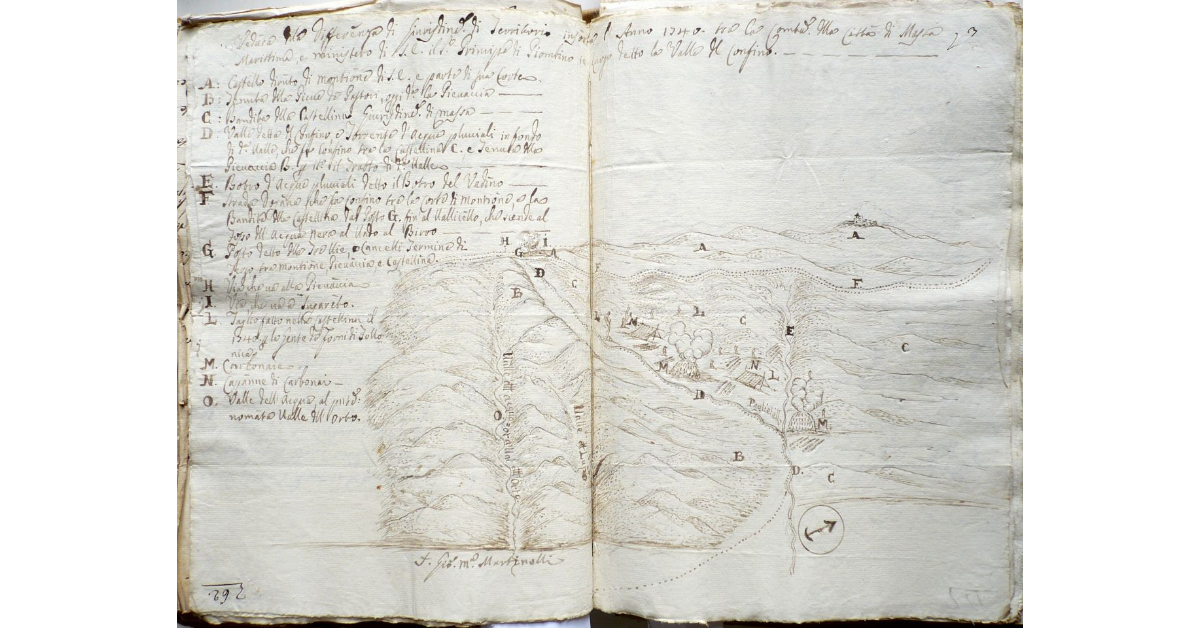 Veduta della differenza di Giurisdine. di Territorio insorta l'Anno 1740. tra la Comtà. della Città di Massa
Marittima, e ministero di S. E. il Sr. Principe di Piombino in luogo detto la Valle del Confino.
A: Castello diruto di Montione di S. E. e parte di sua Corte.
B: Tenuta della Pieve de Pastori, oggi da. la Pievaccia
C: Bandita della Castellina Giurisdine. di Massa
D Valle detta il Confino, e Torrente d'Acque pluviali in fondo
di da. Valle, che fa confino tra la Castellina C. e Tenuta della
Pievaccia B. tratto di da. Valle
E. Botro d'Acque pluviali detto il Botro del Vadino
F Strada che fa confino tra la Corte di Montione, e la
Bandita della Castellina dal Posto G. fin al Vallicello, che scende al
fosso dell'Acqua Nera al Vado al Birro
G Posto detto delle e Cancelli Termine di
mezzo tra Montione Pievaccia e Castellina.
H Via che va alla Pievaccia
I. Via che va a Suvereto.
L Taglio fatto nella Castellina il
1740. da gente de Forni di Follo
nica
M. Carbonaie
N. Capanne di Carbonai
O. Valle dell'Acqua, al
nomata Valle dell'Orto.
H I
G A
D
B
C
F
A
A
F
E
C
L
N
L
C
M
N L
D
M
B
D.
C
O
Valle
F. Gio. Ma. Martinelli
292